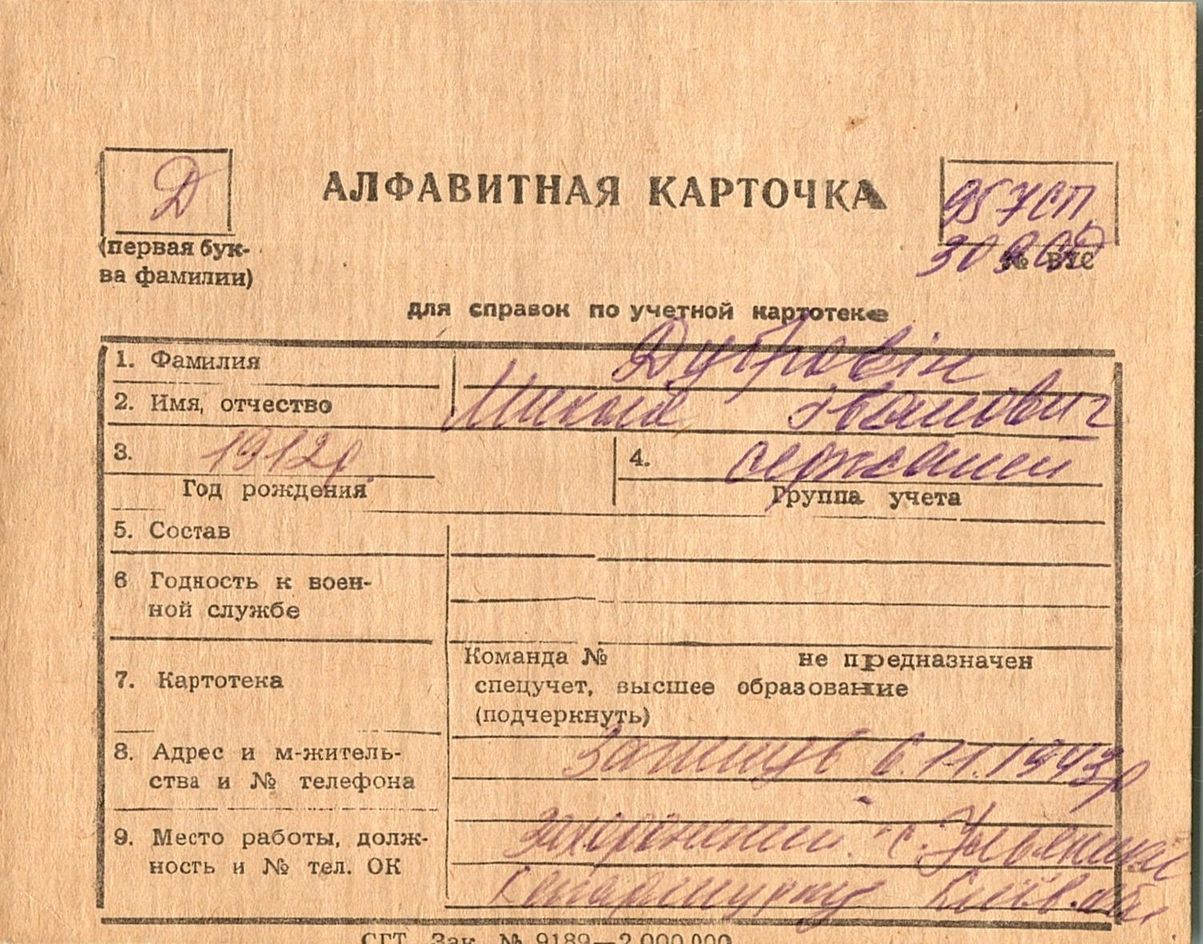 Д
АЛФАВИТНАЯ КАРТОЧКА
957СП
(первая бук-
ва фамилии)
№ ВУС
для справок по учетной картотеке
1. Фамилия Дубровін
2. Имя, отчество Микола Іванович
3. 1912р 4. сержант
Год рождения Группа учета
5. Состав
6 Годность к воен-
ной службе
7. Картотека
Команда № не предназначен
спецучет, высшее образование
(подчеркнуть)
8. Адрес и м-житель-
ства и № телефона
загинув 6.11.1943р
9. Место работы, долж-
ность и № тел. ОК
захоронений с.
СГТ. Зак. № 9189—2.000.000